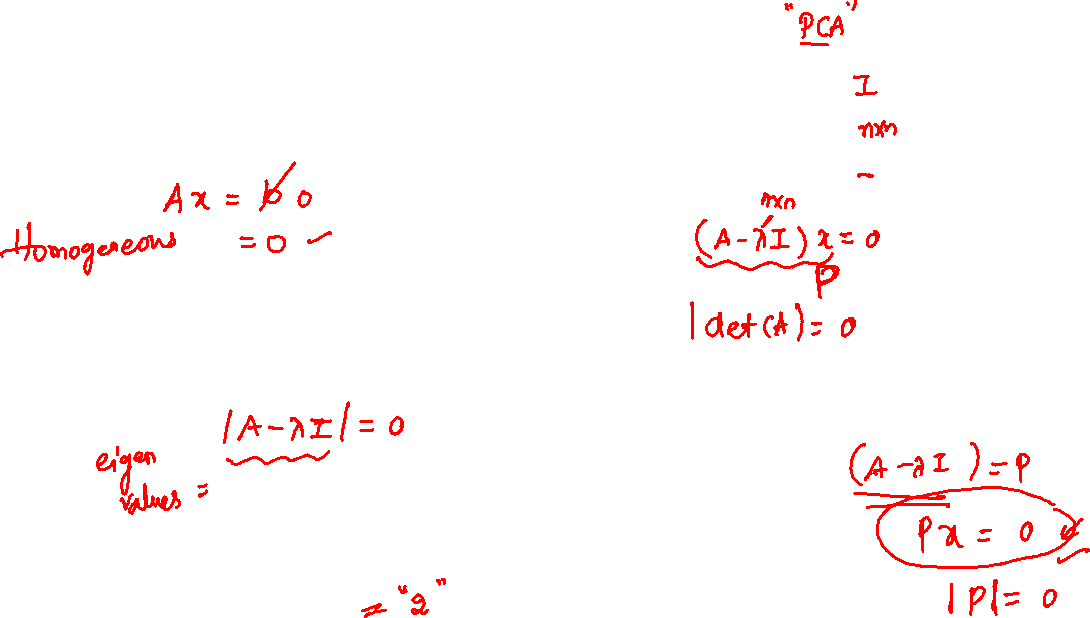 "PCA"
I
nxn
-
Ax = b 0
Homogeneous = 0 ✓
nxn
(A-λI) x = 0
P
|det(A) = 0
|A-λI| = 0
eigen
values =
(A-λI) = P
Px = 0
|P| = 0
= "2"